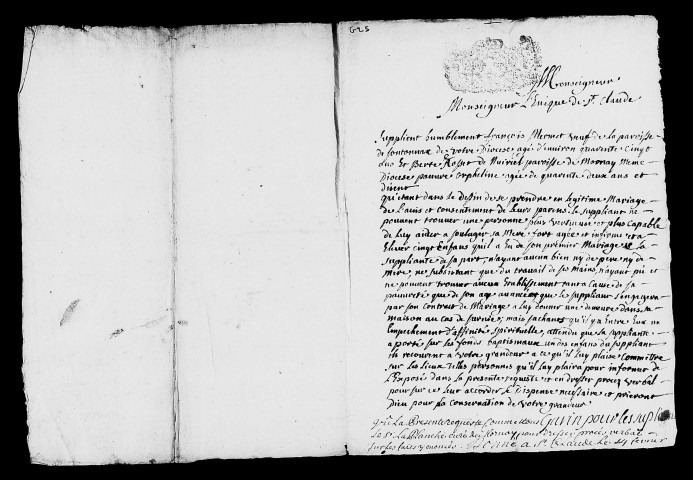 G25
Monseigneur
Monseigneur L'Evêque de St Claude
Supplient humblement françois Mermet veuf de la paroisse
de votre Diocese agé d'environ quarente cinq
ans Et Berte Rosset de paroisse de Mornay meme
Diocese pauvre orpheline agée de quarente deux ans et
disent
qu'étant dans le dessin de se prendre en legitime Mariage
de l'auis et consentement de Leurs parens Le suppliant ne
pouvent trouuer une personne plus vertueuse et plus Capable
de Luy aider a soulager sa Mere fort agée et infirme et a
Elever cinq Enfans qu'il a Eu de son premier Mariage et la
suppliante de sa part, n'ayant aucun bien ny de pere ny de
Mere, ne subsistant que du travail de ses mains, n'ayant pû et
ne pouvent trouuer aucun Etablissement tant a Cause de sa
pauvreté que de son age avancé et que le suppliant s'engagera
par son contract de Mariage a Luy donner une demeure dans sa
maison au cas de survie, mais sachant qu'il y a Entre Eux un
Empechement d'affinité spirituelle, attendu que la suppliante
a porté sur les fonds baptismaux un des enfans du suppliant
ils recourent a votre grandeur a ce qu'il luy plaise Commettre
sur les Lieux telles personnes qu'il Luy plaira pour informer de
L'Exposé dans la presente requiste et en dresser procez verbal
pour sur ce leur accorder la Dispense necessaire et prieront
Dieu pour la conservation de votre grandeur
Gavin pour les suppliants
La presente requeste Commettons
le Sr La Blanche curé de pour dresser procés verbal
sur les faits y enoncés a St Claude le 24 fevrier